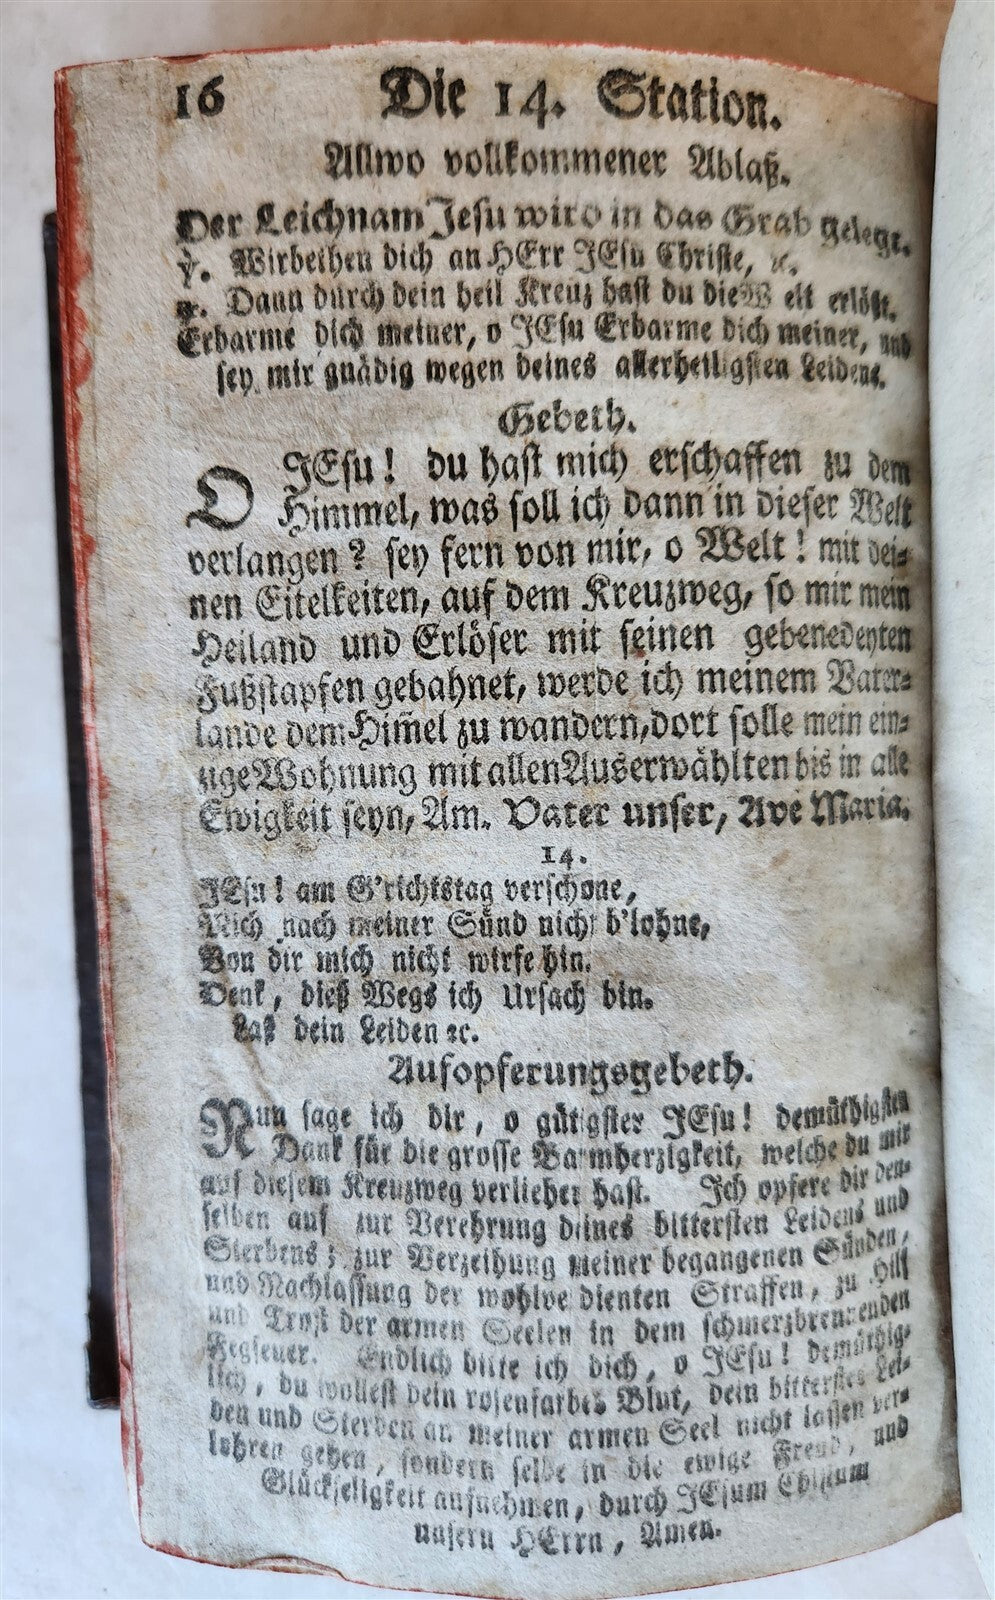 16 Die 14. Station.
Allwo vollkommener Ablaß.
Der Leichnam Jesu wird in das Grab gelegt.
℣. Wirbethen dich an HErr JEsu Christe, ꝛc.
℟. Dann durch dein heil Kreuz hast du die Welt erlößt.
Erbarme dich meiner, o JEsu Erbarme dich meiner, und
sey mir gnädig wegen deines allerheiligsten Leidens.
Gebeth.
O JEsu! du hast mich erschaffen zu dem
Himmel, was soll ich dann in dieser Welt
verlangen? sey fern von mir, o Welt! mit dei⸗
nen Eitelkeiten, auf dem Kreuzweg, so mir mein
Heiland und Erlöser mit seinen gebenedeyten
Fußstapfen gebahnet, werde ich meinem Vater⸗
lande dem Him̄el zu wandern, dort solle mein ein⸗
zige Wohnung mit allen Auserwählten bis in alle
Ewigkeit seyn, Am. Vater unser, Ave Maria.
14.
JEsu! am G'richtstag verschone,
Mich nach meiner Sünd nicht b'lohne,
Von dir mich nicht wirfe hin.
Denk, dieß Wegs ich Ursach bin.
Laß dein Leiden ꝛc.
Aufopferungsgebeth.
Nun sage ich dir, o gütigster JEsu! demüthigsten
Dank für die grosse Barmherzigkeit, welche du mir
auf diesem Kreuzweg verliehen hast. Ich opfere dir den⸗
selben auf zur Verehrung deines bittersten Leidens und
Sterbens; zur Verzeihung meiner begangenen Sünden,
und Nachlassung der wohlverdienten Straffen, zu Hilf
und Trost der armen Seelen in dem schmerzbrennenden
Fegfeuer. Endlich bitte ich dich, o JEsu! demüthig⸗
lich, du wollest dein rosenfarbes Blut, dein bitterstes Lei⸗
den und Sterben an meiner armen Seel nicht lassen ver⸗
lohren gehen, sondern selbe in die ewige Freud, und
Glückseligkeit aufnehmen, durch JEsum Christum
unsern HErrn, Amen.